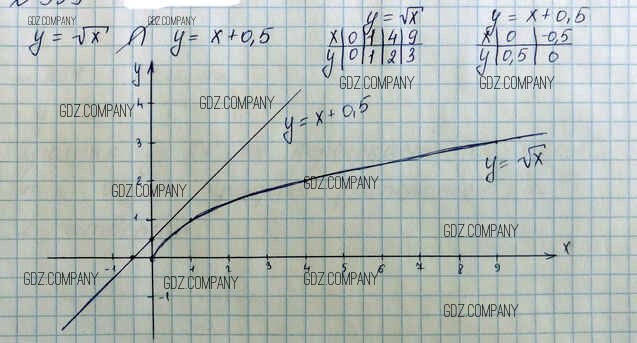 GDZ.COMPANY GDZ.COMPANY
y = √x и y = x + 0,5
y = √x
x 0 1 4 9
y 0 1 2 3
y = x + 0,5
x 0 -0,5
y 0,5 0
GDZ.COMPANY GDZ.COMPANY
y
GDZ.COMPANY GDZ.COMPANY
4
y = x + 0,5
3
y = √x
2
GDZ.COMPANY GDZ.COMPANY
1
GDZ.COMPANY
x
-1 1 2 3 4 5 6 7 8 9
GDZ.COMPANY GDZ.COMPANY GDZ.COMPANY
-1
GDZ.COMPANY